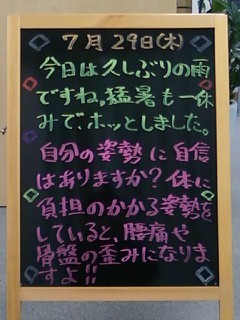 7月29日(木)
今日は久しぶりの雨
ですね。猛暑も一休
みで、ホッとしました。
自分の姿勢に自信
はありますか?体に
負担のかかる姿勢を
していると、腰痛や
骨盤の歪みになりま
すよ!!